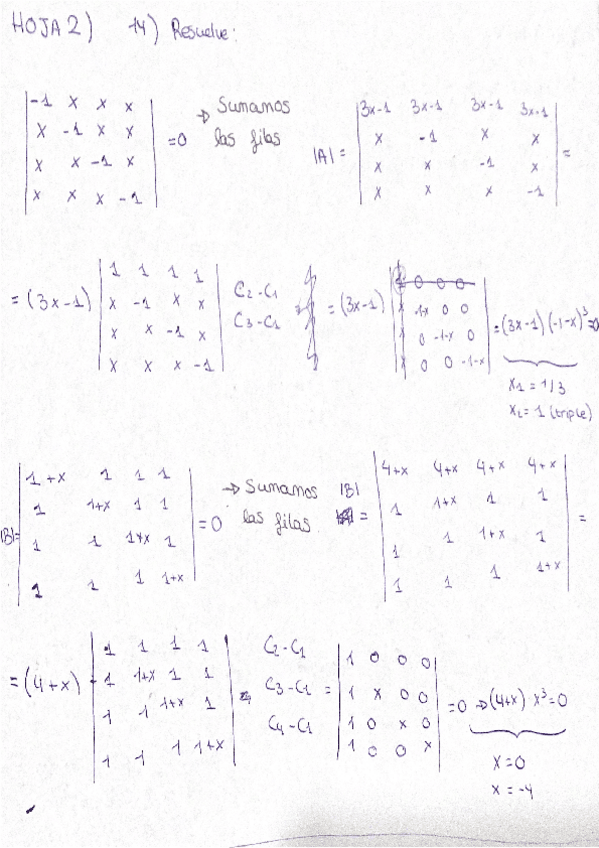 HOJA 2) 14) Resuelve:
|-1 x x x|
|x -1 x x|
|x x -1 x|
|x x x -1| =0 → Sumamos las filas
|A| =
|3x-1 3x-1 3x-1 3x-1|
|x -1 x x|
|x x -1 x|
|x x x -1| =
= (3x-1)
|1 1 1 1|
|x -1 x x|
|x x -1 x|
|x x x -1|
C2-C1
C3-C1
= (3x-1)
|1 0 0 0|
|x -1-x 0 0|
|x 0 -1-x 0|
|x 0 0 -1-x|
= (3x-1) (-1-x)³=0
x1 = 1/3
x2 = 1 (triple)
|B|=
|1+x 1 1 1|
|1 1+x 1 1|
|1 1 1+x 1|
|1 1 1 1+x| =0 → Sumamos las filas
|B| =
|4+x 4+x 4+x 4+x|
|1 1+x 1 1|
|1 1 1+x 1|
|1 1 1 1+x| =
= (4+x)
|1 1 1 1|
|1 1+x 1 1|
|1 1 1+x 1|
|1 1 1 1+x|
C2-C1
C3-C1
C4-C1
=
|1 0 0 0|
|1 x 0 0|
|1 0 x 0|
|1 0 0 x|
=0 → (4+x) · x³=0
x=0
x=-4